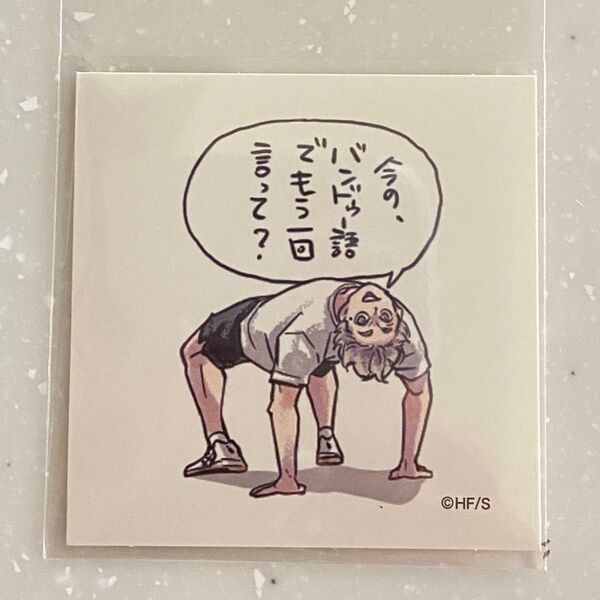 今の、
バンドゥー語
でもう一回
言って？
©HF/S